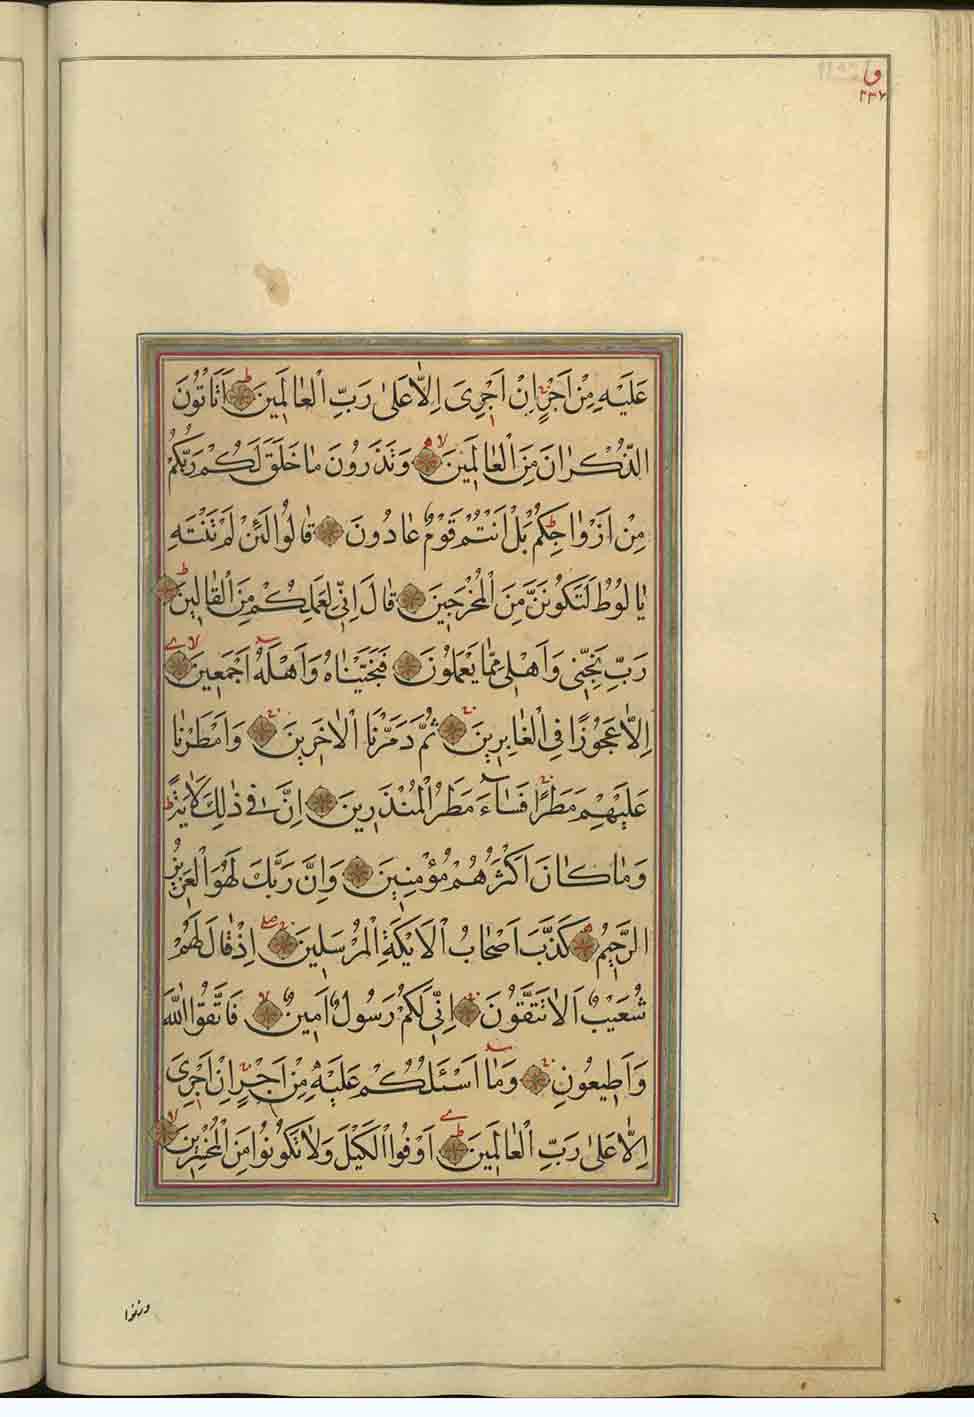 ٣٣٧
عَلَيْهِ مِنْ اَجْرٍ اِنْ اَجْرِىَ اِلاّٰ عَلىٰ رَبِّ الْعٰالَمِينَ اَتَأْتُونَ
الذُّكْرٰانَ مِنَ الْعٰالَمِينَ وَتَذَرُونَ مٰا خَلَقَ لَكُمْ رَبُّكُمْ
مِنْ اَزْوٰاجِكُمْ بَلْ اَنْتُمْ قَوْمٌ عٰادُونَ قٰالُوا لَئِنْ لَمْ تَنْتَهِ
يٰا لُوطُ لَتَكُونَنَّ مِنَ الْمُخْرَجِينَ قٰالَ اِنِّي لِعَمَلِكُمْ مِنَ الْقٰالِينَ
رَبِّ نَجِّنِي وَاَهْلِي مِمّٰا يَعْمَلُونَ فَنَجَّيْنٰاهُ وَاَهْلَهُ اَجْمَعِينَ
اِلاّٰ عَجُوزًا فِي الْغٰابِرِينَ ثُمَّ دَمَّرْنَا الْاٰخَرِينَ وَاَمْطَرْنٰا
عَلَيْهِمْ مَطَرًا فَسٰآءَ مَطَرُ الْمُنْذَرِينَ اِنَّ فِي ذٰلِكَ لَاٰيَةً
وَمٰا كٰانَ اَكْثَرُهُمْ مُؤْمِنِينَ وَاِنَّ رَبَّكَ لَهُوَ الْعَزِيزُ
الرَّحِيمُ كَذَّبَ اَصْحٰابُ الْاَيْكَةِ الْمُرْسَلِينَ اِذْ قٰالَ لَهُمْ
شُعَيْبٌ اَلاٰ تَتَّقُونَ اِنِّي لَكُمْ رَسُولٌ اَمِينٌ فَاتَّقُوا اللّٰهَ
وَاَطِيعُونِ وَمٰا اَسْئَلُكُمْ عَلَيْهِ مِنْ اَجْرٍ اِنْ اَجْرِىَ
اِلاّٰ عَلىٰ رَبِّ الْعٰالَمِينَ اَوْفُوا الْكَيْلَ وَلاٰ تَكُونُوا مِنَ الْمُخْسِرِينَ
وزنوا